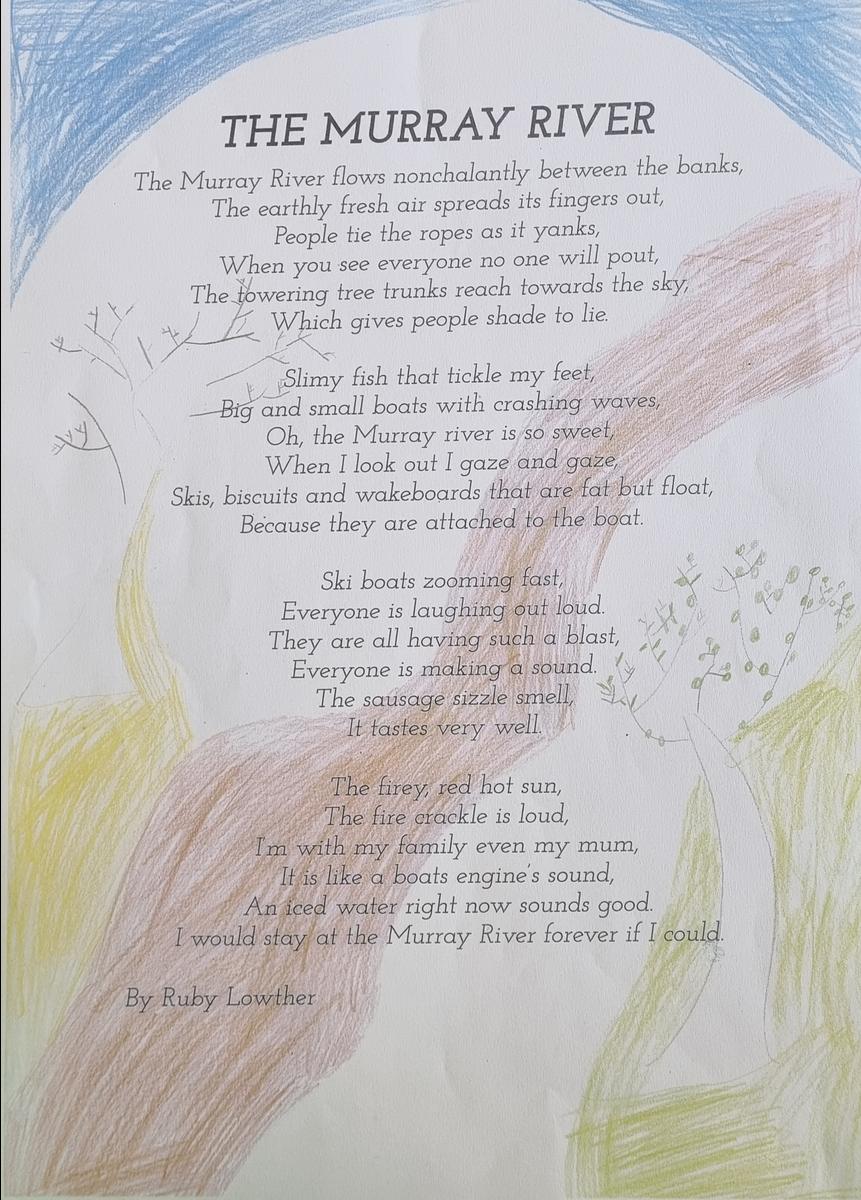 THE MURRAY RIVER
The Murray River flows nonchalantly between the banks,
The earthly fresh air spreads its fingers out,
People tie the ropes as it yanks,
When you see everyone no one will pout,
The towering tree trunks reach towards the sky,
Which gives people shade to lie.
Slimy fish that tickle my feet,
Big and small boats with crashing waves,
Oh, the Murray river is so sweet,
When I look out I gaze and gaze,
Skis, biscuits and wakeboards that are fat but float,
Because they are attached to the boat.
Ski boats zooming fast,
Everyone is laughing out loud.
They are all having such a blast,
Everyone is making a sound.
The sausage sizzle smell,
It tastes very well.
The firey, red hot sun,
The fire crackle is loud,
I'm with my family even my mum,
It is like a boats engine's sound,
An iced water right now sounds good.
I would stay at the Murray River forever if I could.
By Ruby Lowther